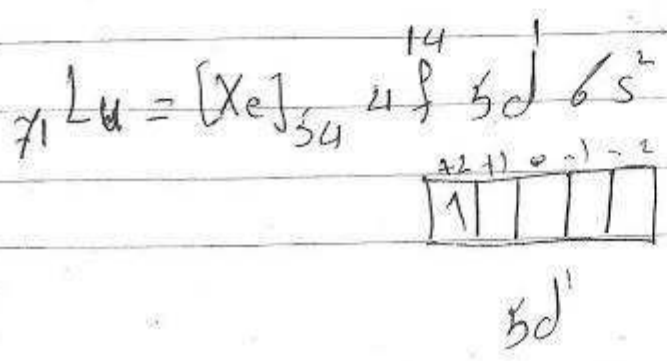 ₇₁Lu = [Xe]₅₄ 4f¹⁴ 5d¹ 6s²
+2 +1 0 -1 -2
1
5d¹